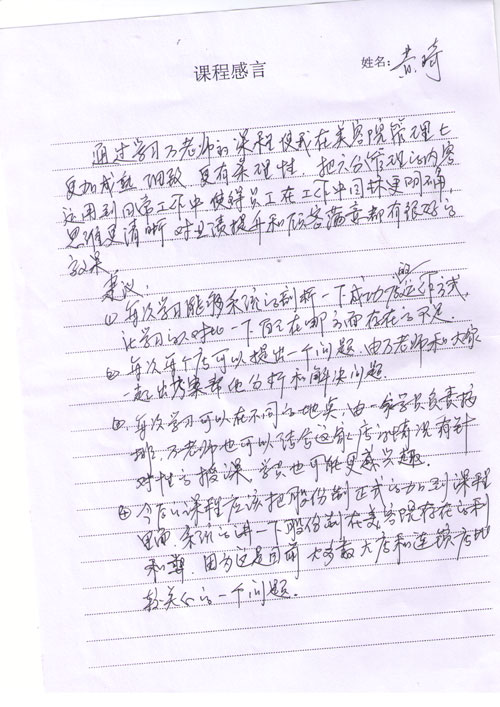 课程感言
姓名: 黄琦
通过学习万老师的课程使我在美容院管理上
更加成熟 更有条理性, 把六分管理的内容
运用到日常工作中, 使得员工在工作中目标更明确,
思维更清晰, 对业绩提升和顾客满意都有很好的
效果。
建议:
① 每次学习能够系统的剖析一下成功店的运作方式,
让学习的对比一下自己在哪方面存在的不足.
② 每次每个店可以提出一个问题, 由万老师和大家
一起出方案帮他分析和解决问题.
③ 每次学习可以在不同的地点, 由一名学员负责安
排, 万老师也可以结合这家店的情况有针
对性的授课, 学员也可能更感兴趣.
④ 今后的课程应该把股份制正式的加到课程
里面, 系统的讲一下股份制在美容院存在的利
和弊, 因为这是目前大多数大店和连锁店比
较关心的一个问题.